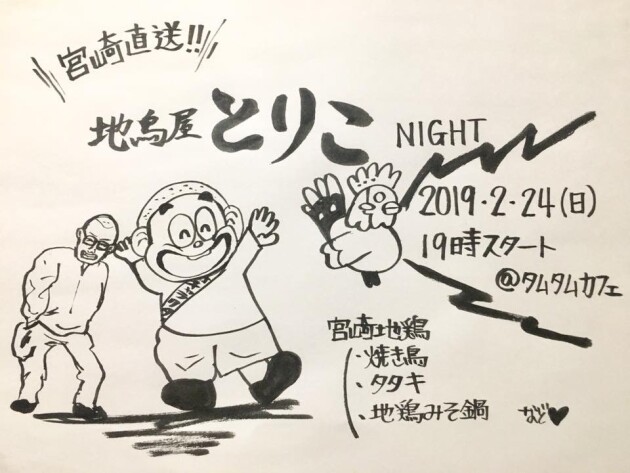 宮崎直送!!
地鳥屋 とりこ NIGHT
2019・2・24(日)
19時スタート
@タムタムカフェ
宮崎地鶏
・焼き鳥
・タタキ
・地鶏みそ鍋 など♥